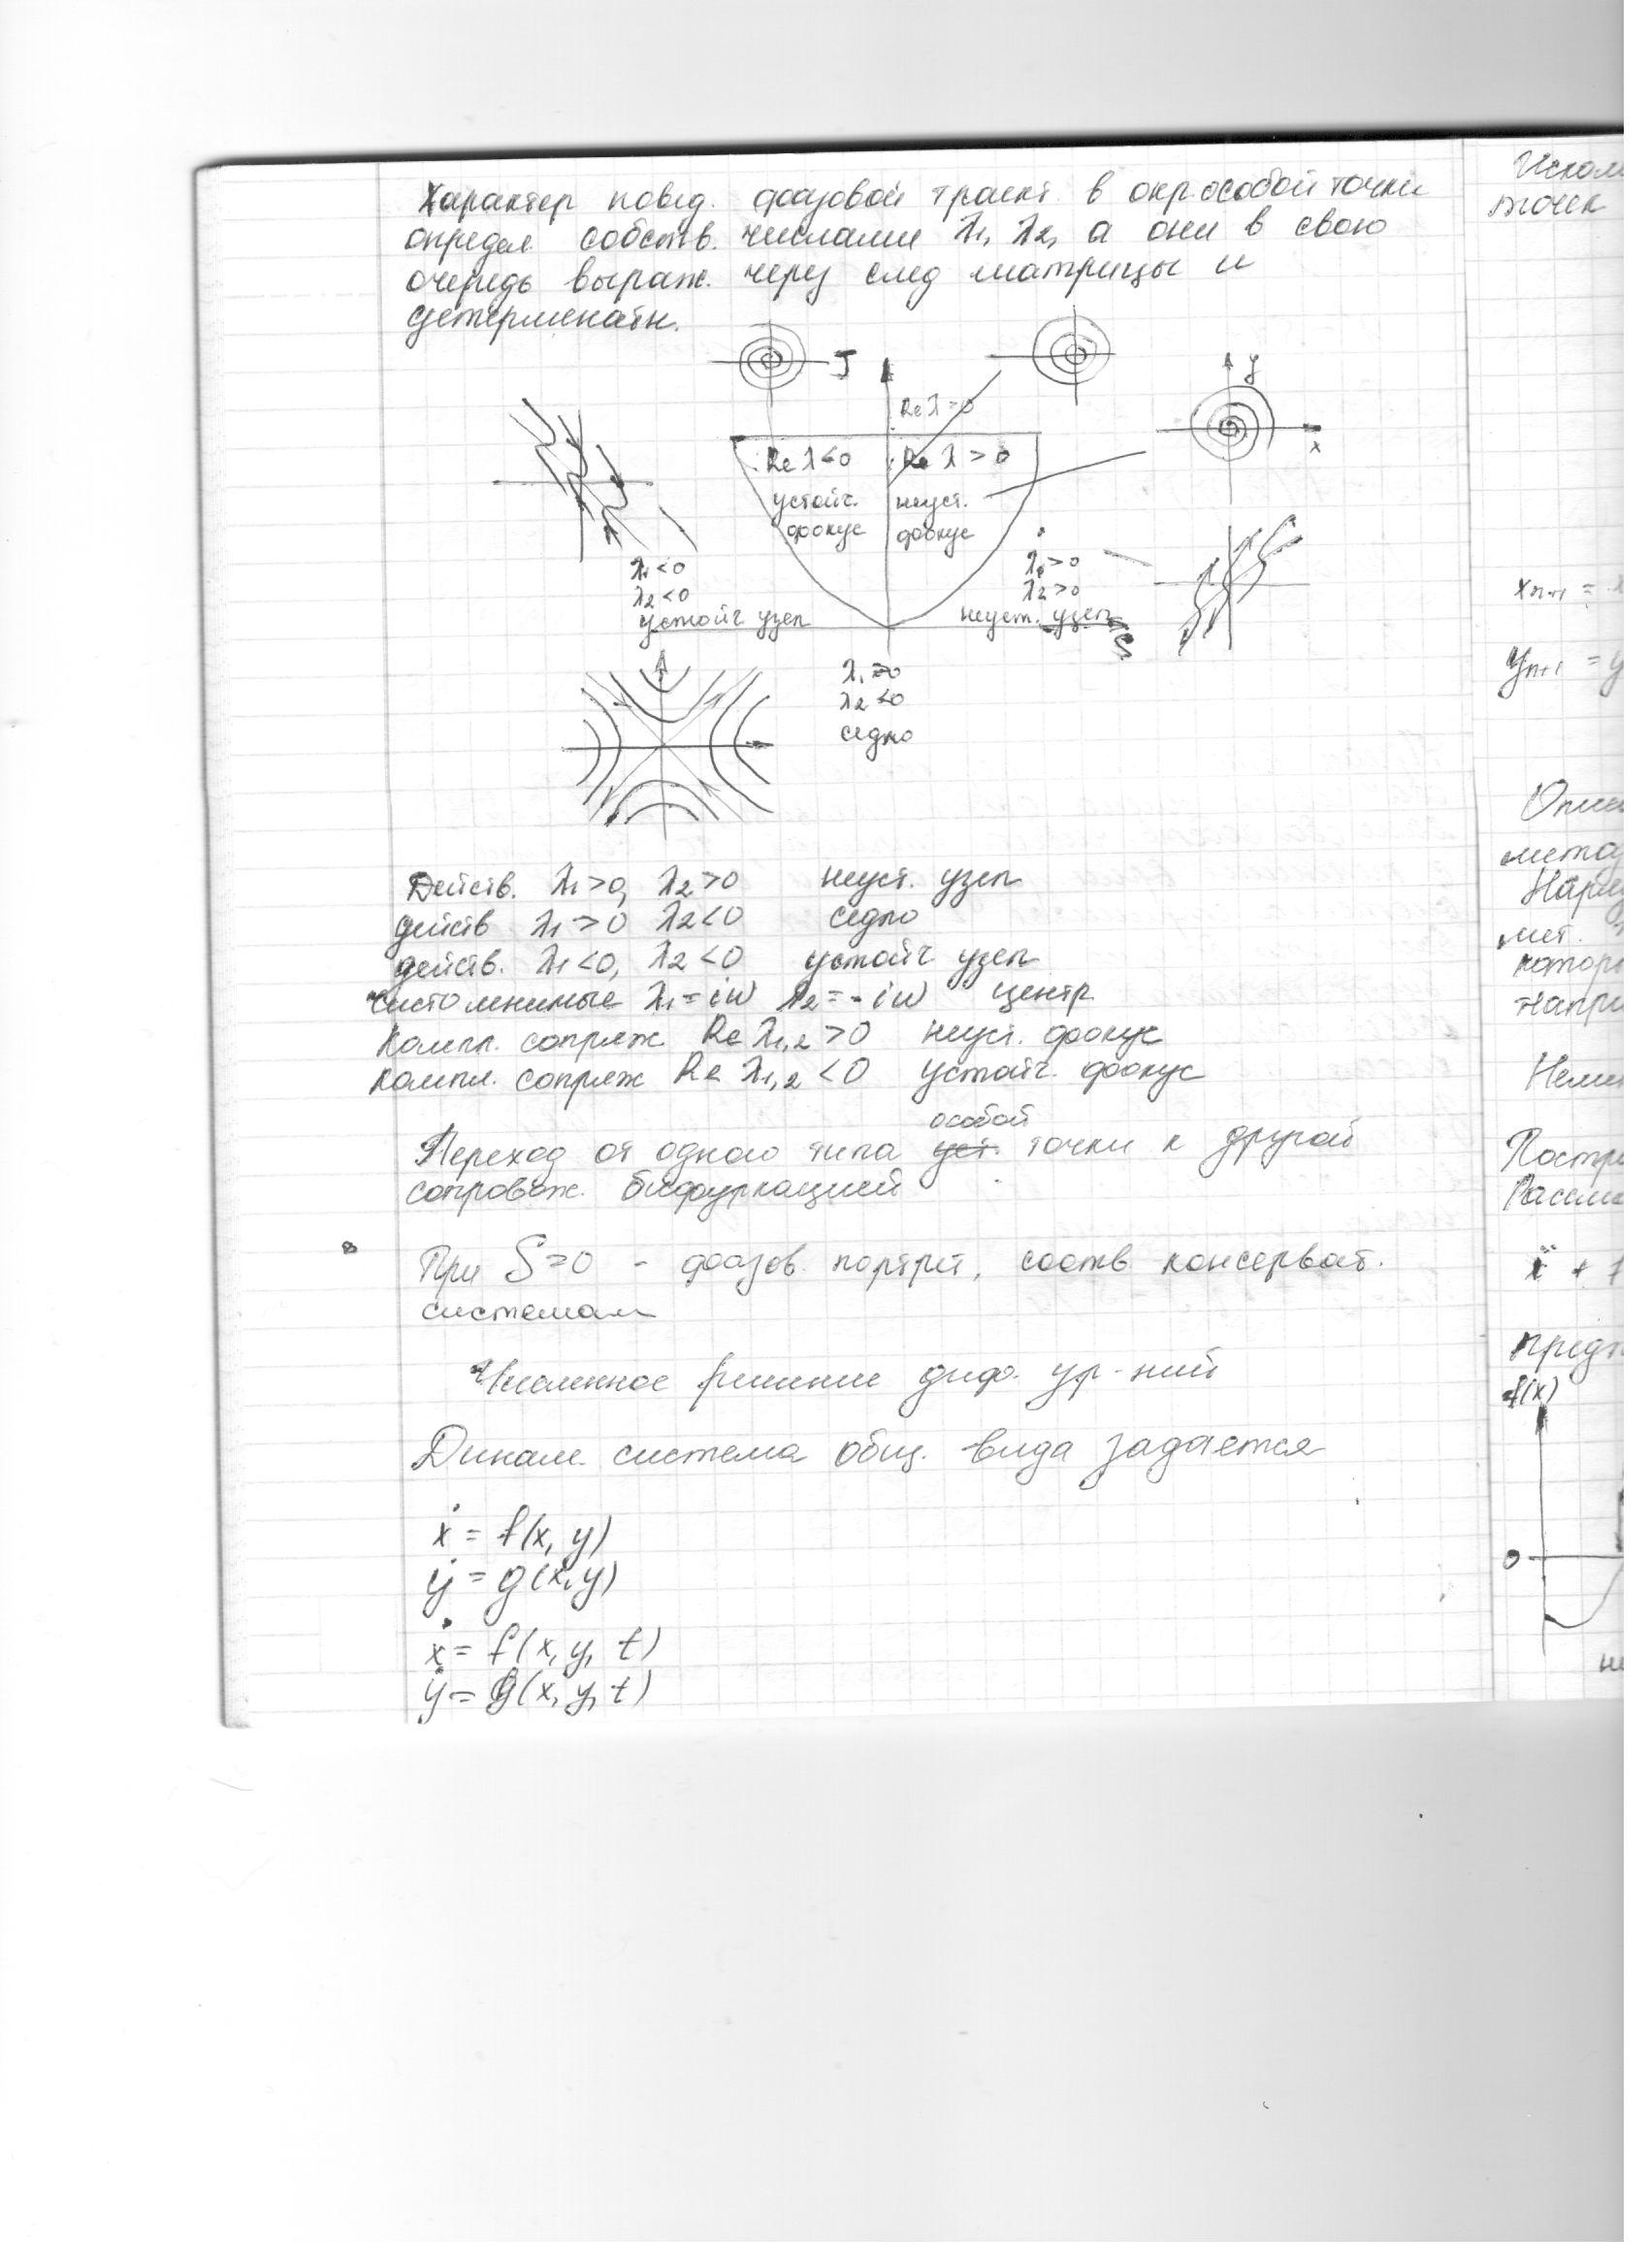 Характер повед. фазовой траект. в окр. особой точки
определ. собств. числами λ₁, λ₂, а они в свою
очередь выраж. через след матрицы и
детерменатн.
J
Re λ = 0
y
x
Re λ < 0
устойч.
фокус
Re λ > 0
неуст.
фокус
λ₁ < 0
λ₂ < 0
устойч узел
λ₁ > 0
λ₂ > 0
неуст. узел
S
λ₁ > 0
λ₂ < 0
седло
Действ. λ₁ > 0, λ₂ > 0 неуст. узел
действ λ₁ > 0 λ₂ < 0 седло
действ. λ₁ < 0, λ₂ < 0 устойч узел
чисто мнимые λ₁ = iω λ₂ = - iω центр
компл. сопряж Re λ₁,₂ > 0 неуст. фокус
компл. сопряж Re λ₁,₂ < 0 устойч. фокус
особой
Переход от одного типа точки к другой
сопровож. бифуркацией
При S = 0 - фазов. портрет, соотв. консерват.
системам
Численное решение диф. ур-ний
Динам. система общ. вида задается
ẋ = f(x, y)
ẏ = g(x, y)
ẋ = f(x, y, t)
ẏ = g(x, y, t)
точек
xₙ₊₁ =
yₙ₊₁ = y
f(x)
0